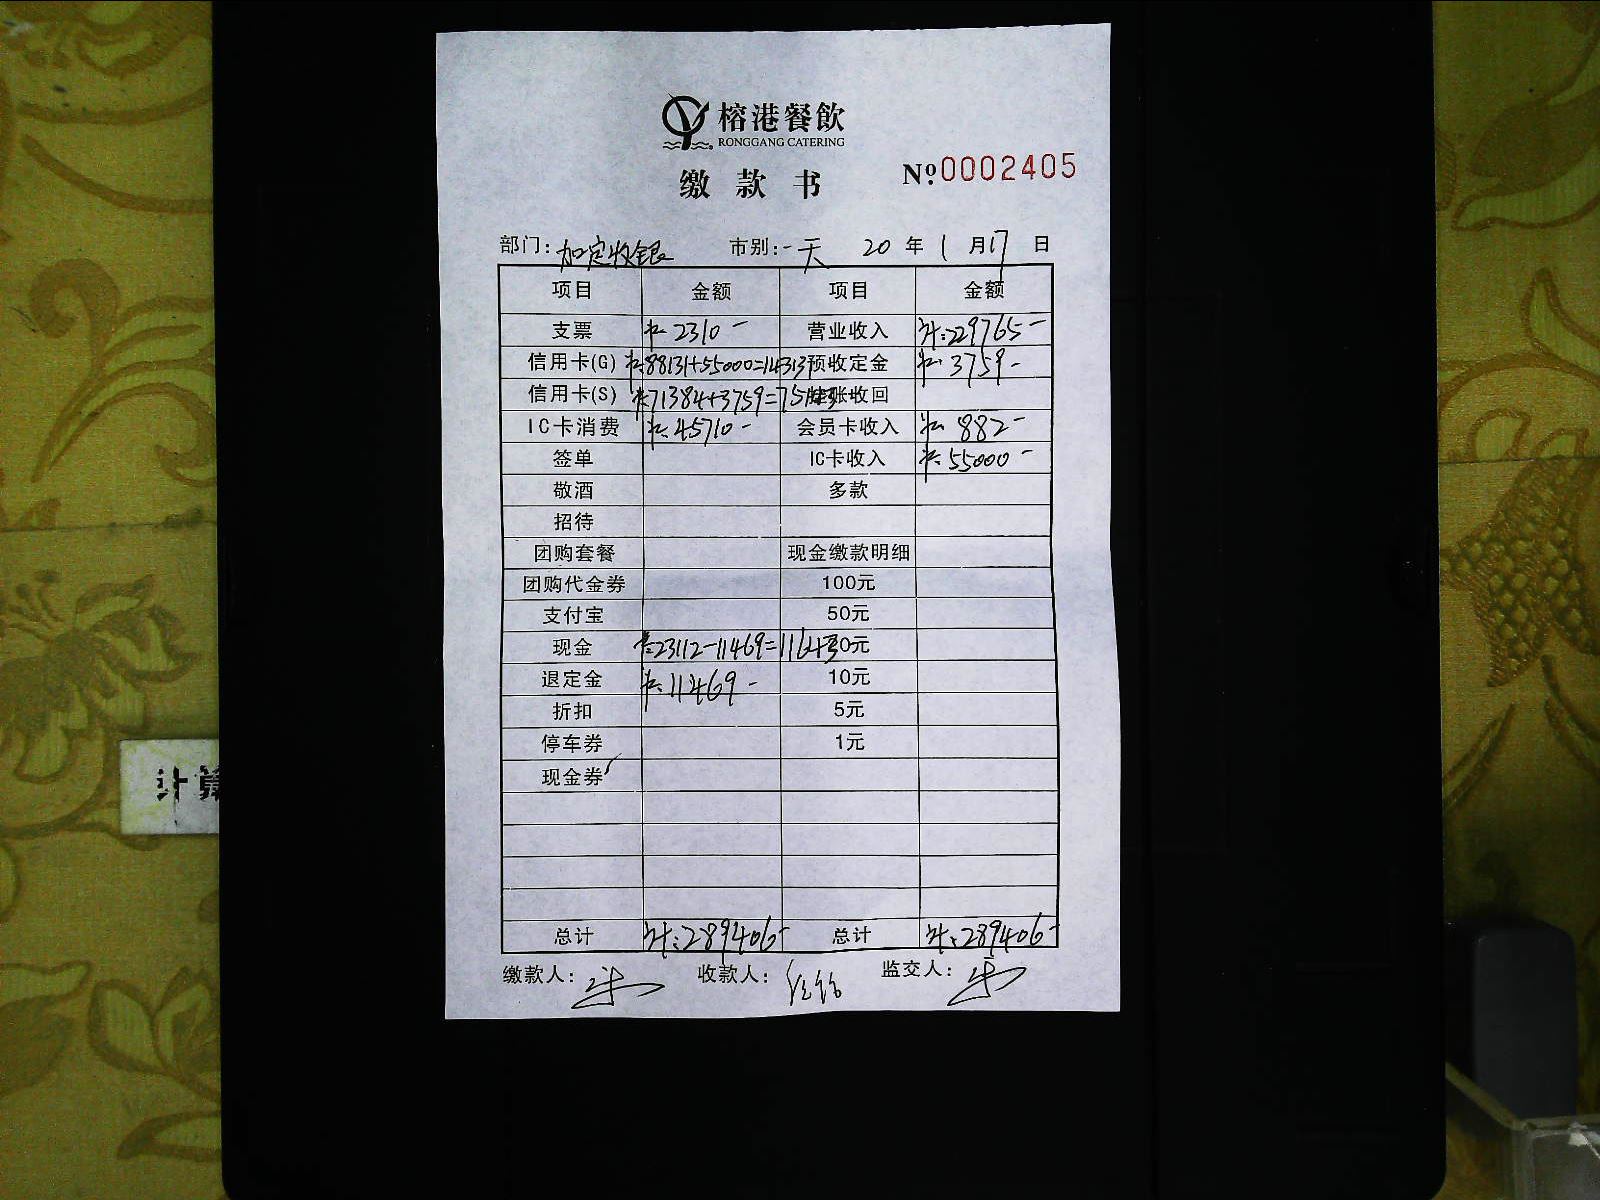 榕港餐飲
RONGGANG CATERING
缴款书 №0002405
部门: 加定收银 市别: 一天 20 年 1 月 17 日
项目 金额 项目 金额
支票 ¥:2310- 营业收入 ¥:229765-
信用卡(G) ¥:88131+55000=14313 预收定金 ¥:3759-
信用卡(S) ¥:71384+3759=75143 挂账收回
IC卡消费 ¥:45710- 会员卡收入 ¥:882-
签单 IC卡收入 ¥:55000-
敬酒 多款
招待
团购套餐 现金缴款明细
团购代金券 100元
支付宝 50元
现金 ¥:23112-11469=11643 0元
退定金 ¥:11469- 10元
折扣 5元
停车券 1元
现金券
总计 ¥:289406- 总计 ¥:289406-
缴款人: 收款人: 监交人:
计算